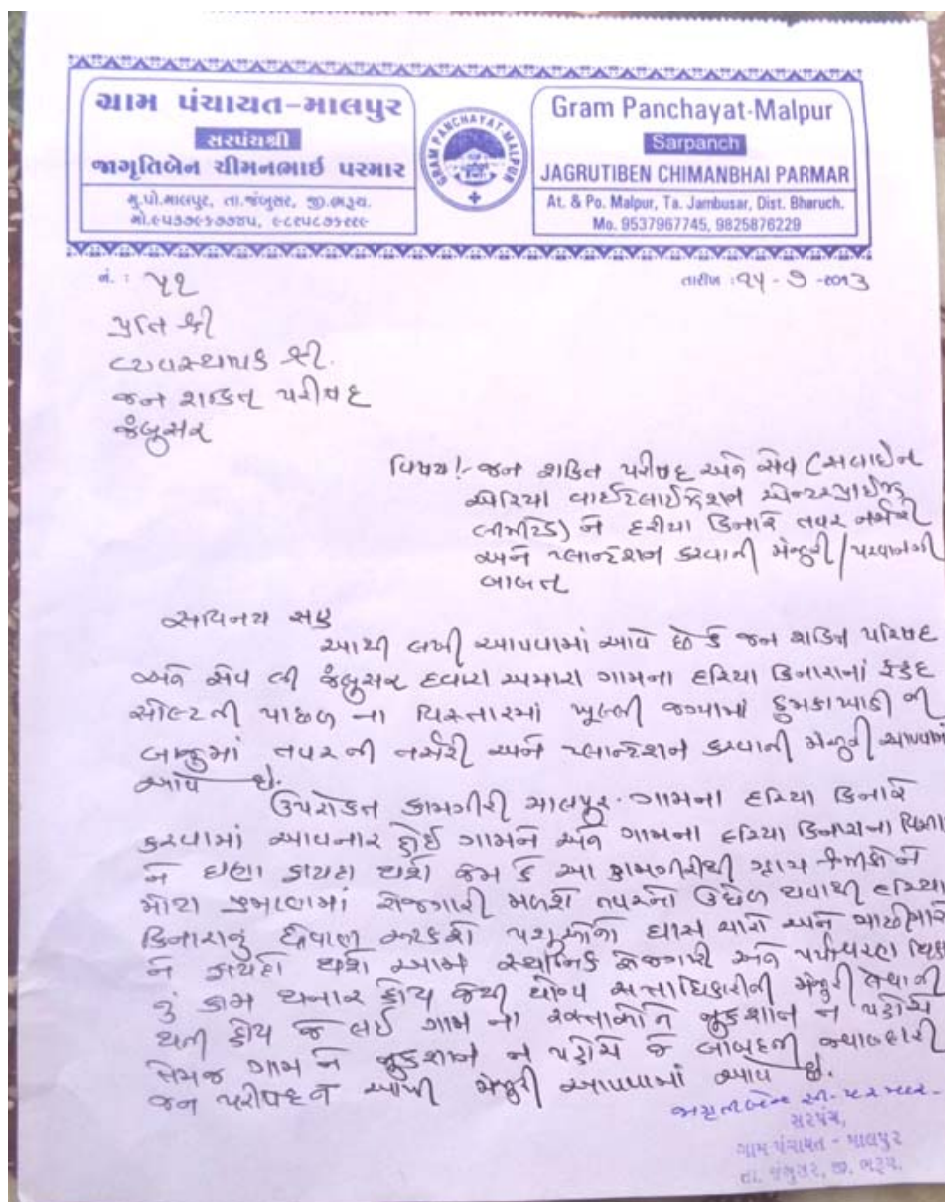 ગ્રામ પંચાયત-માલપુર
સરપંચશ્રી
જાગૃતિબેન ચીમનભાઈ પરમાર
મુ.પો.માલપુર, તા.જંબુસર, જી.ભરૂચ.
મો.૯૫૩૭૯૬૭૭૪૫, ૯૮૨૫૮૭૬૨૨૯
GRAM PANCHAYAT-MALPUR
Gram Panchayat-Malpur
Sarpanch
JAGRUTIBEN CHIMANBHAI PARMAR
At. & Po. Malpur, Ta. Jambusar, Dist. Bharuch.
Mo. 9537967745, 9825876229
નં. : ૫૧
તારીખ : ૧૫ - ૭ -૨૦૧૩
પ્રતિ શ્રી
વ્યવસ્થાપક શ્રી.
જન શક્તિ પરીષદ
જંબુસર
વિષય :- જન શકિત પરીષદ અને સેવ (સલાઈન
એરિયા વાઈટલાઈઝેશન એન્ટરપ્રાઈઝ
લીમીટેડ) ને દરીયા કિનારે તવર નર્સરી
અને પ્લાન્ટેશન કરવાની મંજુરી/પરવાનગી
બાબત
સવિનય સહ
આથી લખી આપવામાં આવે છે કે જન શકિત પરિષદ
અને સેવ લી જંબુસર દ્વારા અમારા ગામના દરિયા કિનારાનાં
સોલ્ટની પાછળ ના વિસ્તારમાં ખૂલ્લી જગ્યામાં ની
બાજુમાં તવર ની નર્સરી અને પ્લાન્ટેશન કરવાની મંજુરી આપવામાં
આવે છે.
ઉપરોકત કામગીરી માલપુર ગામના દરિયા કિનારે
કરવામાં આવનાર હોઈ ગામને અને ગામના દરિયા કિનારાના
ને ઘણા ફાયદા થશે કેમ કે આ કામગીરીથી
મોટા પ્રમાણમાં રોજગારી મળશે તવરનો ઉછેળ થવાથી દરિયા
કિનારાનું ધોવાણ અટકશે પશુઓનો ઘાસ ચારો અને
ને ફાયદો થશે આમ સ્થાનિક રોજગારી અને પર્યાવરણ
નું કામ થનાર હોય જેથી યોગ્ય સત્તાધિકારીની મંજુરી લેવાની
થતી હોય જે લઈ ગામ ના ને નુકશાન ન પહોંચે
તેમજ ગામ ને નુકશાન ન પહોંચે જે બાબદની જવાબદારી
જન પરીષદને આપી મંજુરી આપવામાં આવે છે.
જાગૃતીબેન સી. પરમાર
સરપંચ,
ગ્રામ પંચાયત - માલપુર
તા. જંબુસર, જી. ભરૂચ.